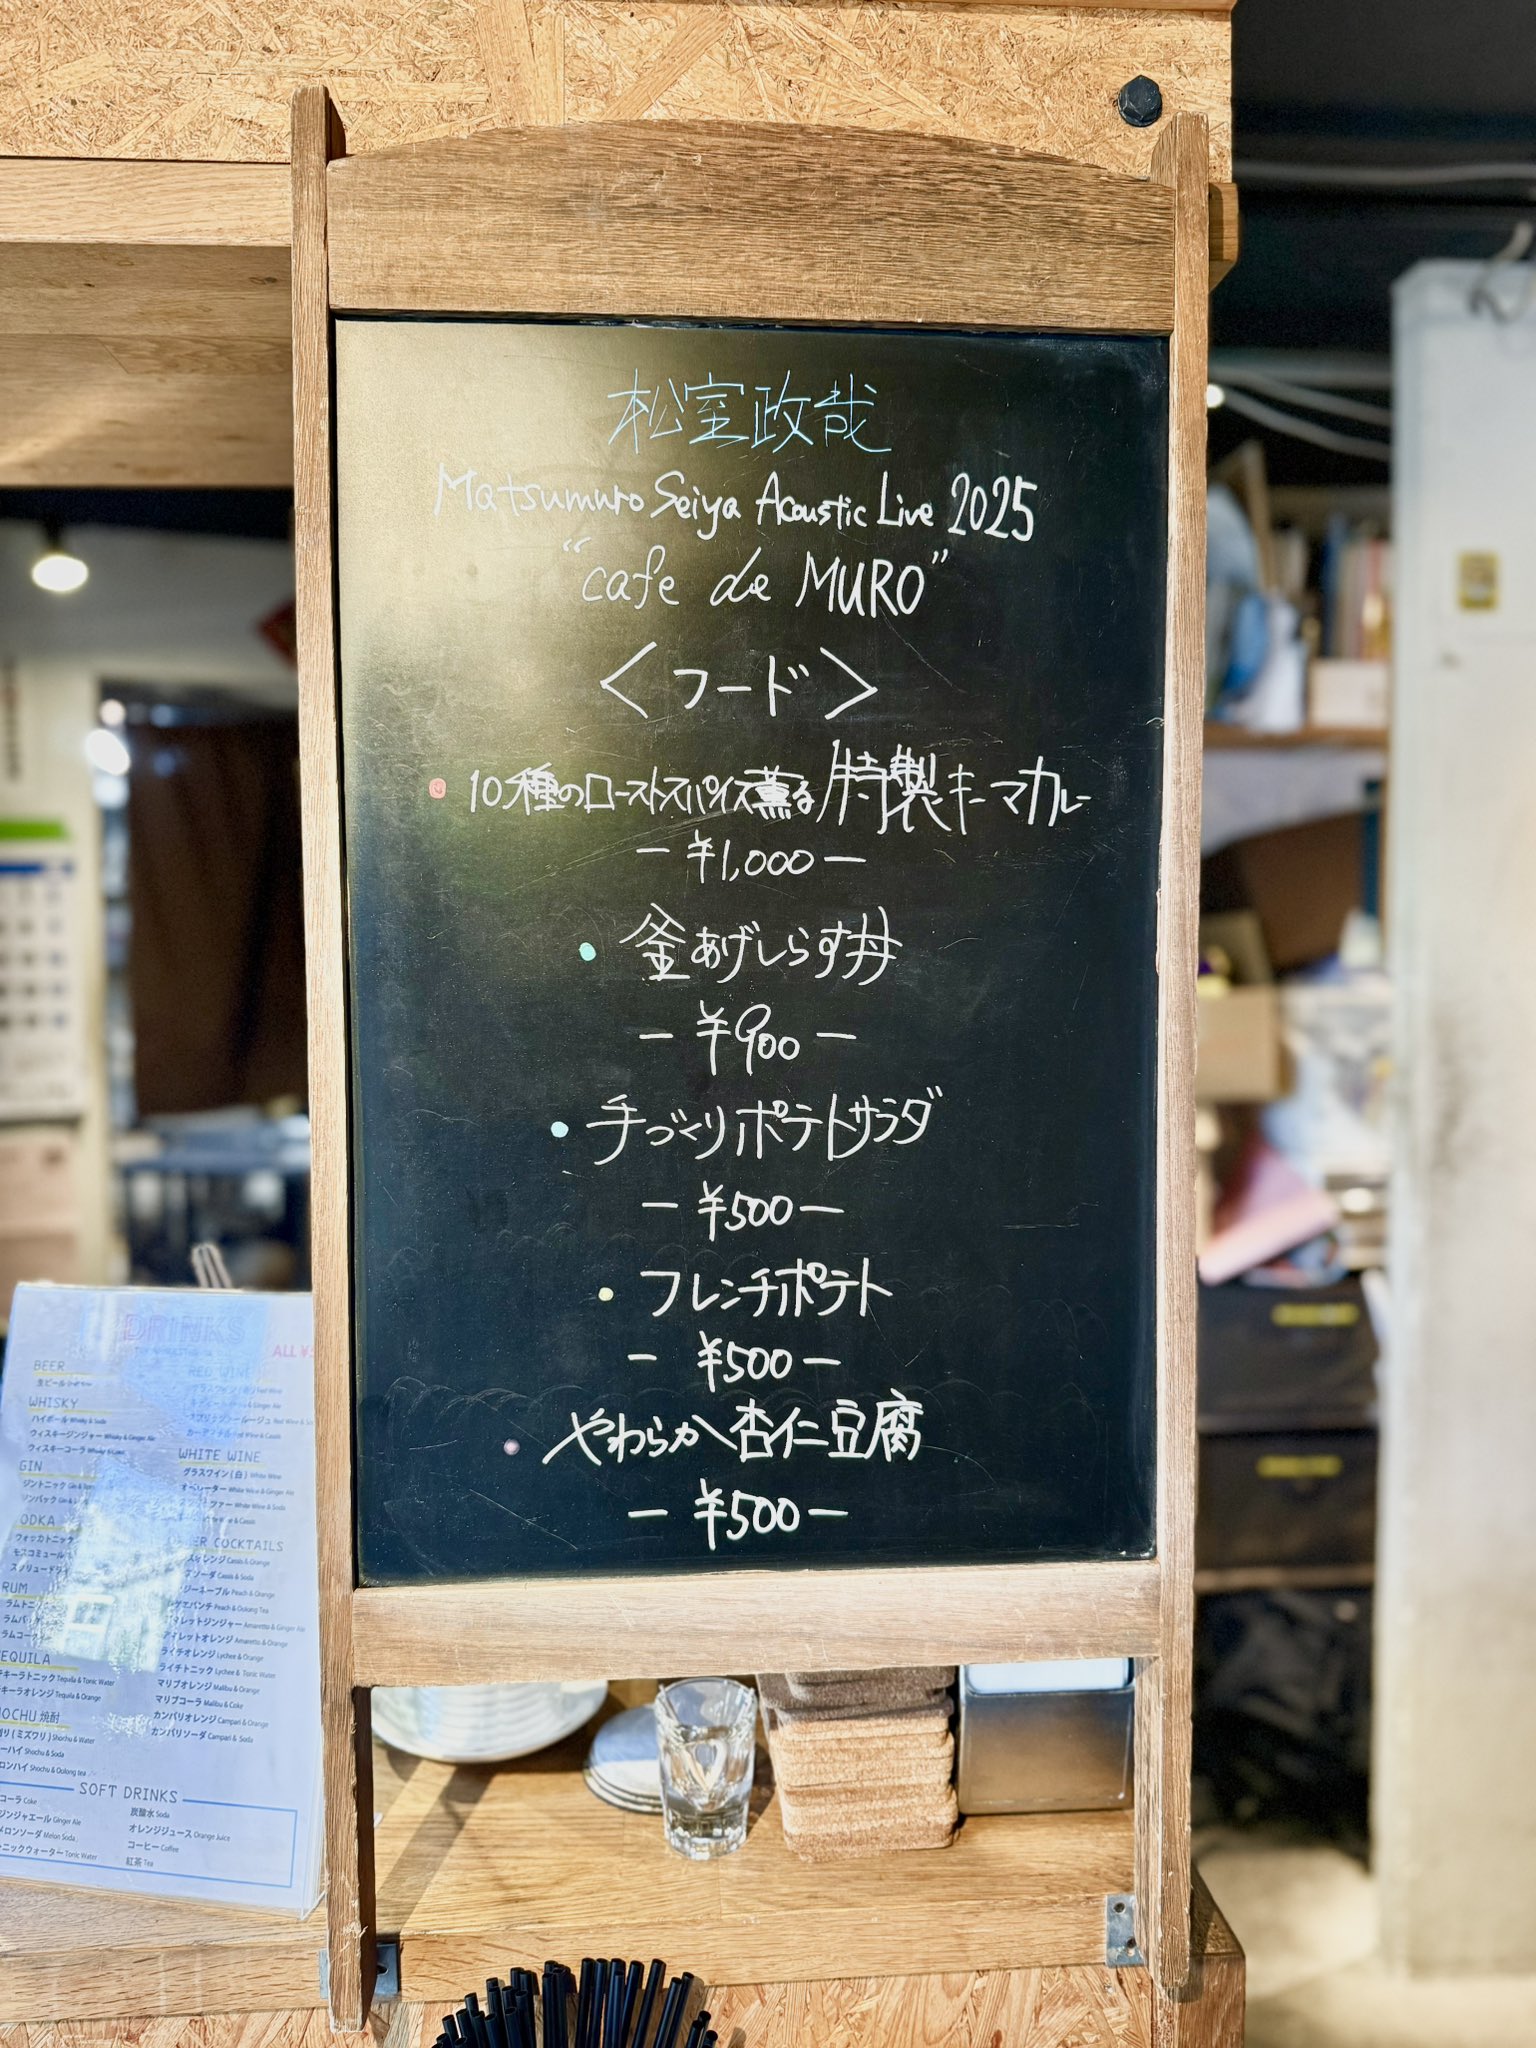 松室政哉
Matsumuro Seiya Acoustic Live 2025
"cafe de MURO"
<フード>
• 10種のローストスパイス薫る特製キーマカレー
- ¥1,000 -
• 釜あげしらす丼
- ¥900 -
• 手づくりポテトサラダ
- ¥500 -
• フレンチポテト
- ¥500 -
• やわらか杏仁豆腐
- ¥500 -
DRINKS
ALL ¥
BEER
生ビール
WHISKY
ハイボール Whisky & Soda
ウィスキージンジャー Whisky & Ginger Ale
ウィスキーコーラ
GIN
ジントニック
ジンバック
ODKA
ウォッカトニック
モスコミュール
RUM
ラムトニ
ラムバッ
ラムコー
EQUILA
キーラトニック Tequila & Tonic Water
キーラオレンジ Tequila & Orange
OCHU 焼酎
割り (ミズワリ) Shochu & Water
ーハイ Shochu & Soda
ロンハイ Shochu & Oolong tea
RED WINE
グラスワイン
WHITE WINE
グラスワイン (白) White Wine
オペレーター White Wine & Ginger Ale
ツァー White Wine & Soda
ER COCKTAILS
スオレンジ Cassis & Orange
ソーダ Cassis & Soda
ジーネーブル Peach & Orange
ゲエパンチ Peach & Oolong Tea
マレットジンジャー Amaretto & Ginger Ale
マレットオレンジ Amaretto & Orange
ライチオレンジ Lychee & Orange
ライチトニック Lychee & Tonic Water
マリブオレンジ Malibu & Orange
マリブコーラ Malibu & Coke
カンパリオレンジ Campari & Orange
カンパリソーダ Campari & Soda
SOFT DRINKS
コーラ Coke
ジンジャエール Ginger Ale
メロンソーダ Melon Soda
ニックウォーター Tonic Water
炭酸水 Soda
オレンジジュース Orange Juice
コーヒー Coffee
紅茶 Tea